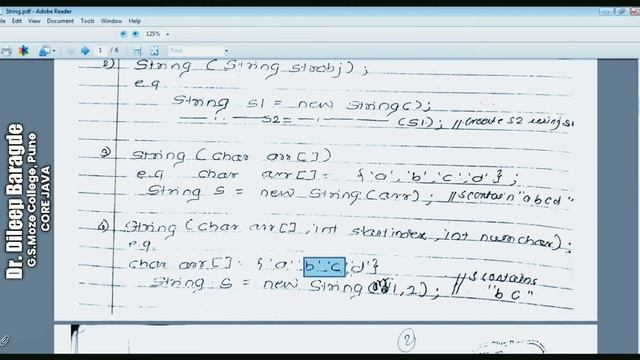 String.pdf - Adobe Reader
1 / 6
125%
Find
2) String (String strobj);
e.g
String s1 = new String();
s2 = (s1); // Create s2 using s1
3) String (char arr[])
e.g char arr[] = {'a','b','c','d'};
String s = new String(arr); // s contain "abcd"
4) String (char arr[], int startindex, int numchar);
e.g.
char arr[] = {'a','b','c','d'}
String s = new String ( 1,2); // s contains
"bc"
2
Dr. Dileep Baragde
G.S.Moze College, Pune
CORE JAVA